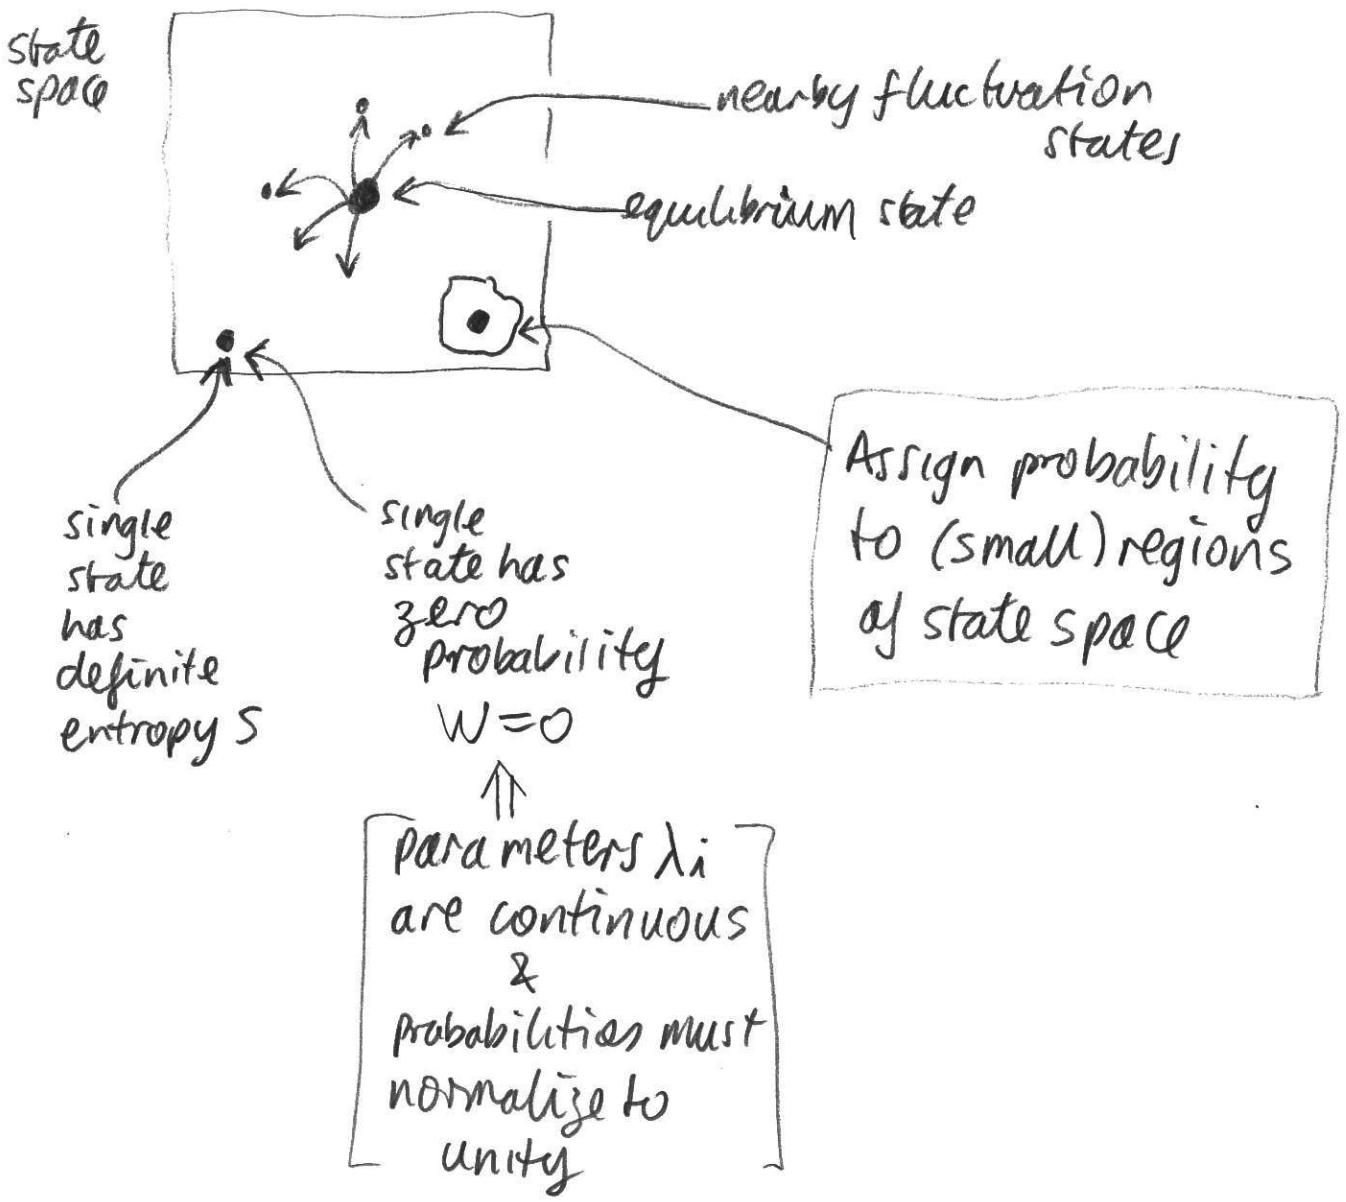 state
space
nearby fluctuation
states
equilibrium state
Assign probability
to (small) regions
of state space
single
state
has
definite
entropy S
single
state has
zero
probability
W=0
⇑
parameters λi
are continuous
&
probabilities must
normalize to
unity